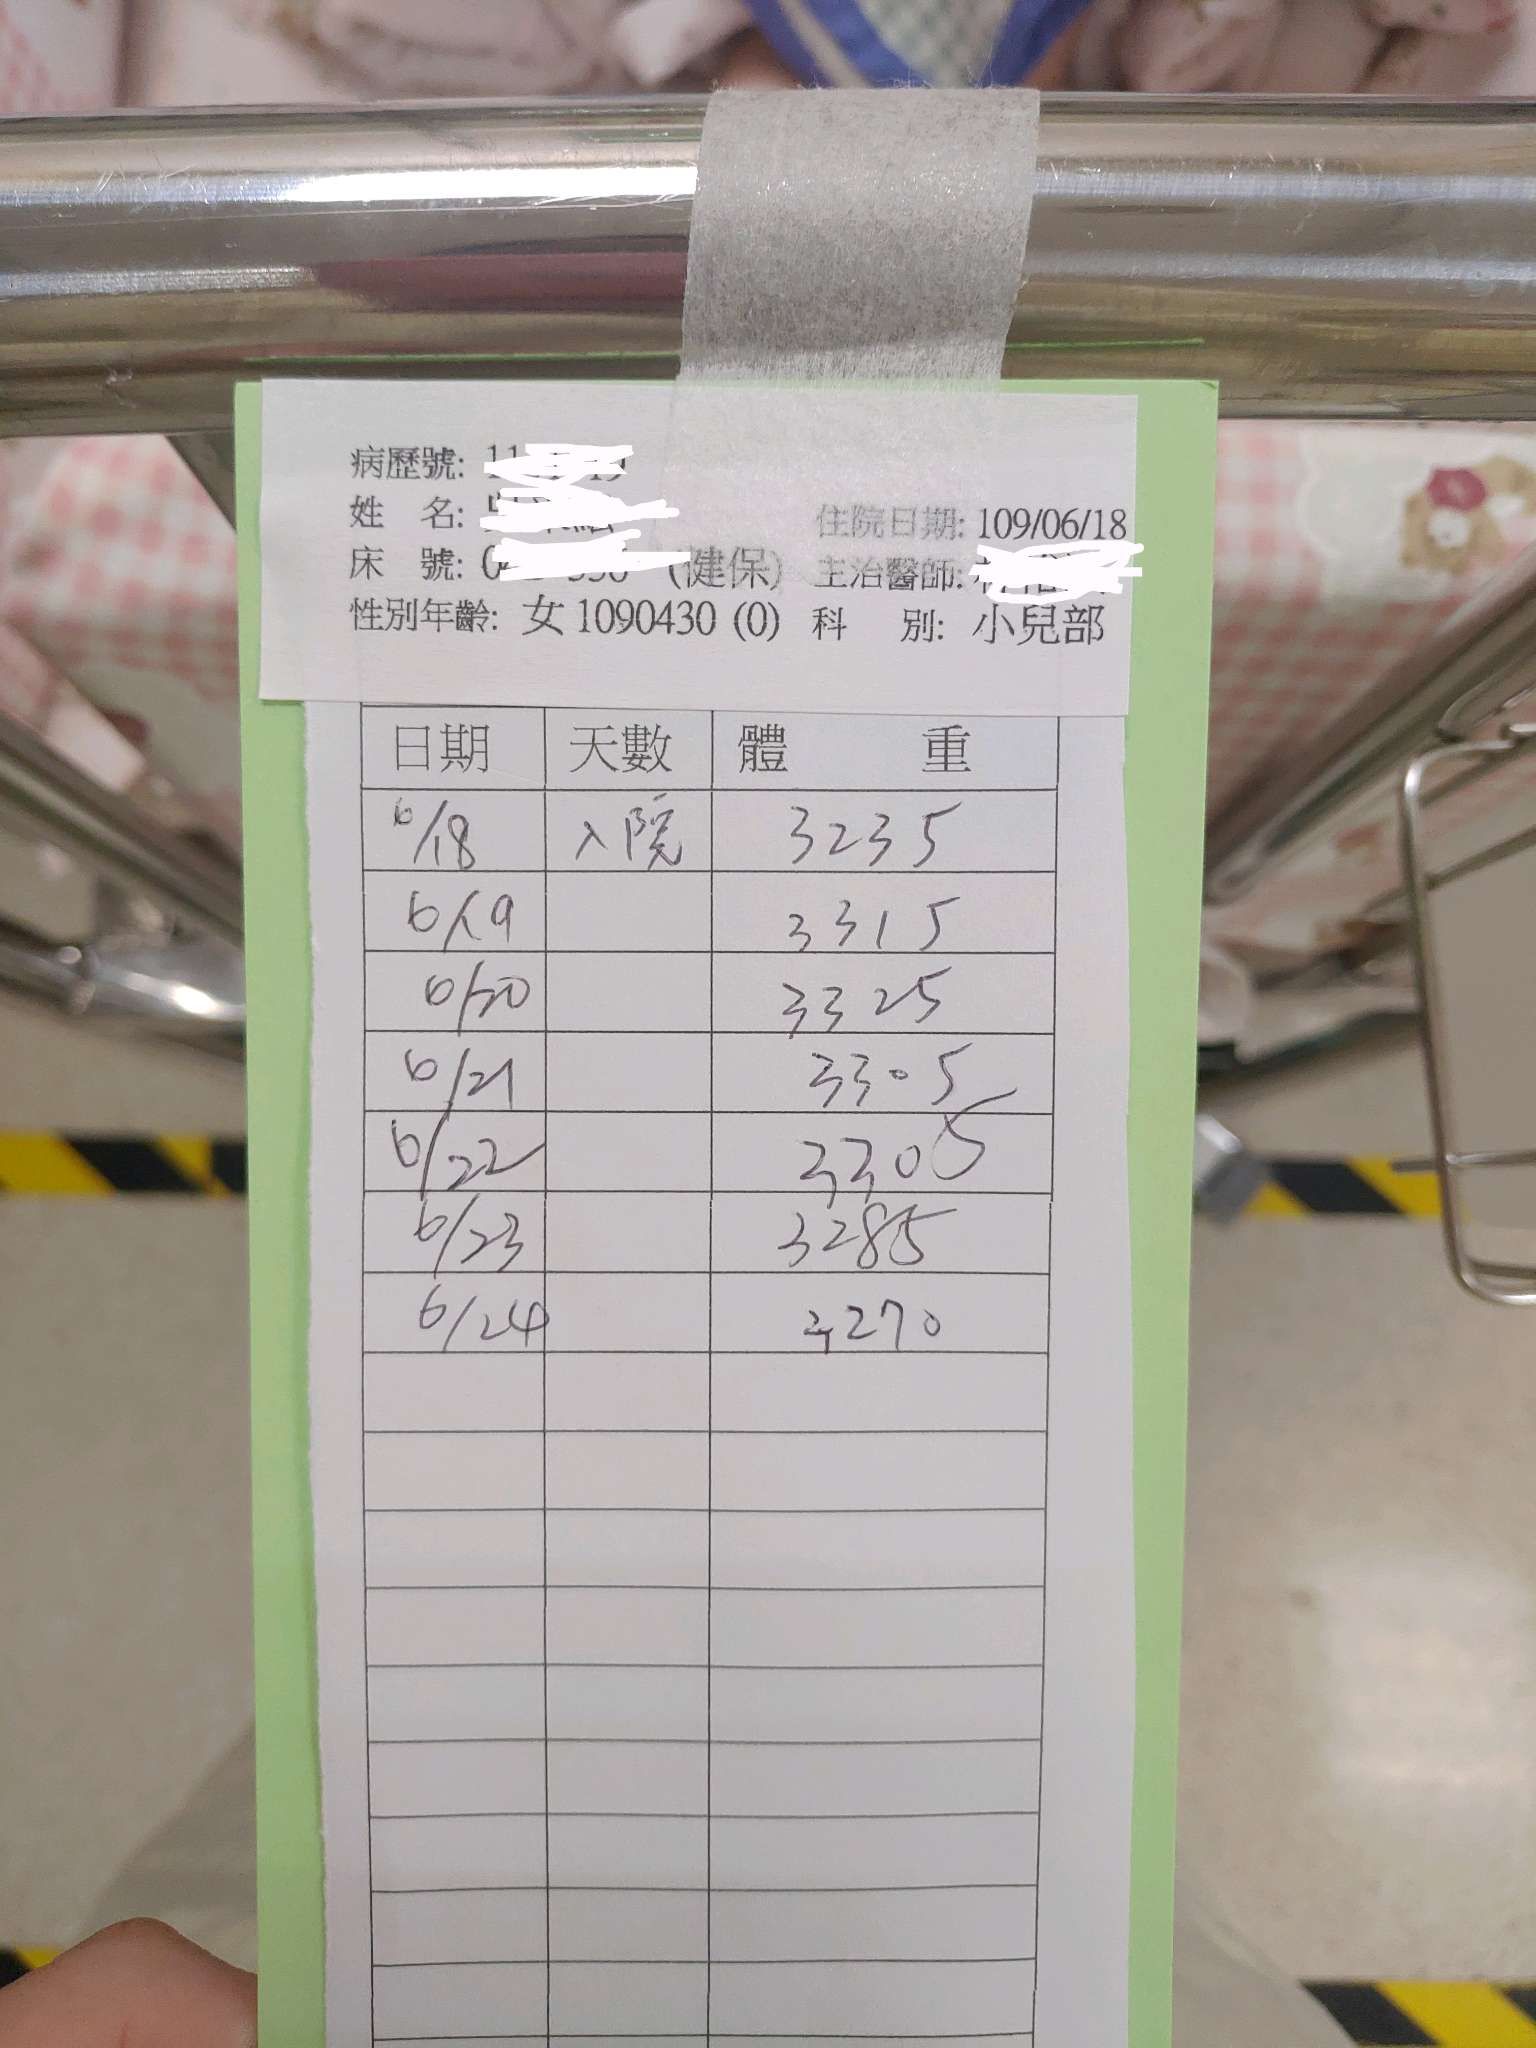 病歷號:
姓 名:
住院日期: 109/06/18
床 號: (健保) 主治醫師:
性別年齡: 女 1090430 (0) 科 別: 小兒部
日期 天數 體 重
6/18 入院 3235
6/19 3315
6/20 3325
6/21 3305
6/22 3305
6/23 3285
6/24 3270